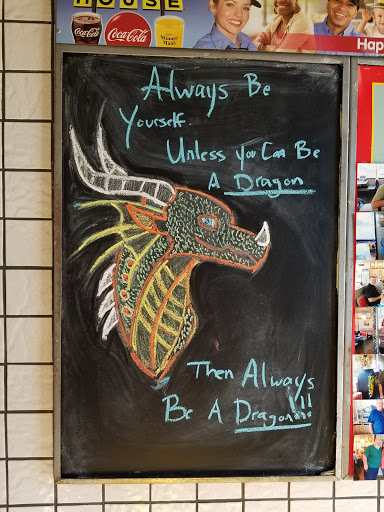 HOUSE
Coca-Cola
Coca-Cola
Minute Maid
Hap
Always Be
Yourself.
Unless you Can Be
A Dragon
Then Always
Be A Dragon!!!